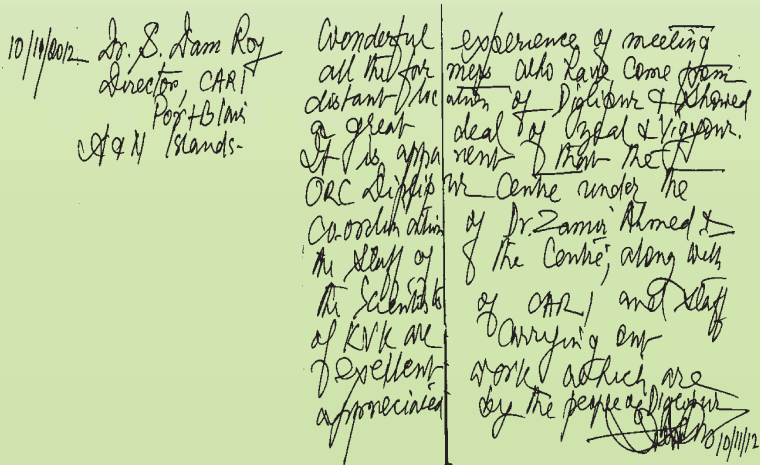 10/11/2012 Dr. S. Dam Roy
Director, CARI
Port Blair
A & N Islands-
Wonderful experience of meeting
all the farmers who have come from
distant location of Diglipur & showed
a great deal of zeal & Vigour.
It is apparent that the
ORC Diglipur Centre under the
Co-ordination of Dr. Zamir Ahmed &
the staff of the Centre, along with
the Scientists of CARI and staff
of KVK are carrying out
excellent work which are
appreciated by the people of Diglipur
10/11/12